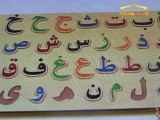 ب ت ث ج ح خ
د ذ ر ز س ش ص
ط ظ ع غ ف ق
ل م ن ه و ی